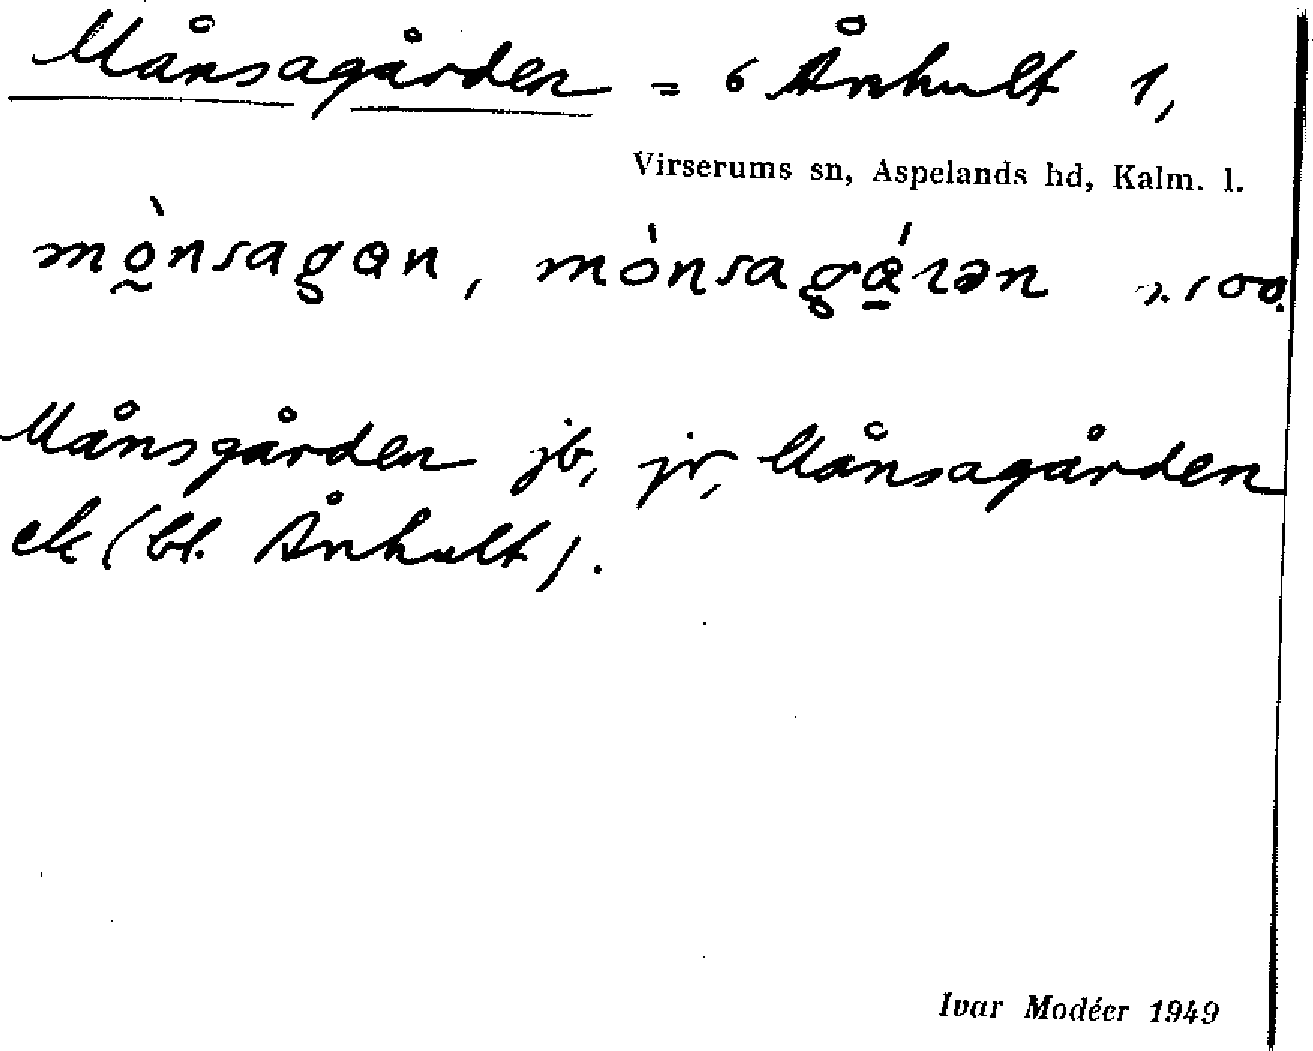 Månsagården = 6 Ånhult 1,
Virserums sn, Aspelands hd, Kalm. l.
mò̰nsagan, mónsagá̱rən
Månsgården jb, jr, Månsagården
ek (bl. Ånhult).
Ivar Modéer 1949